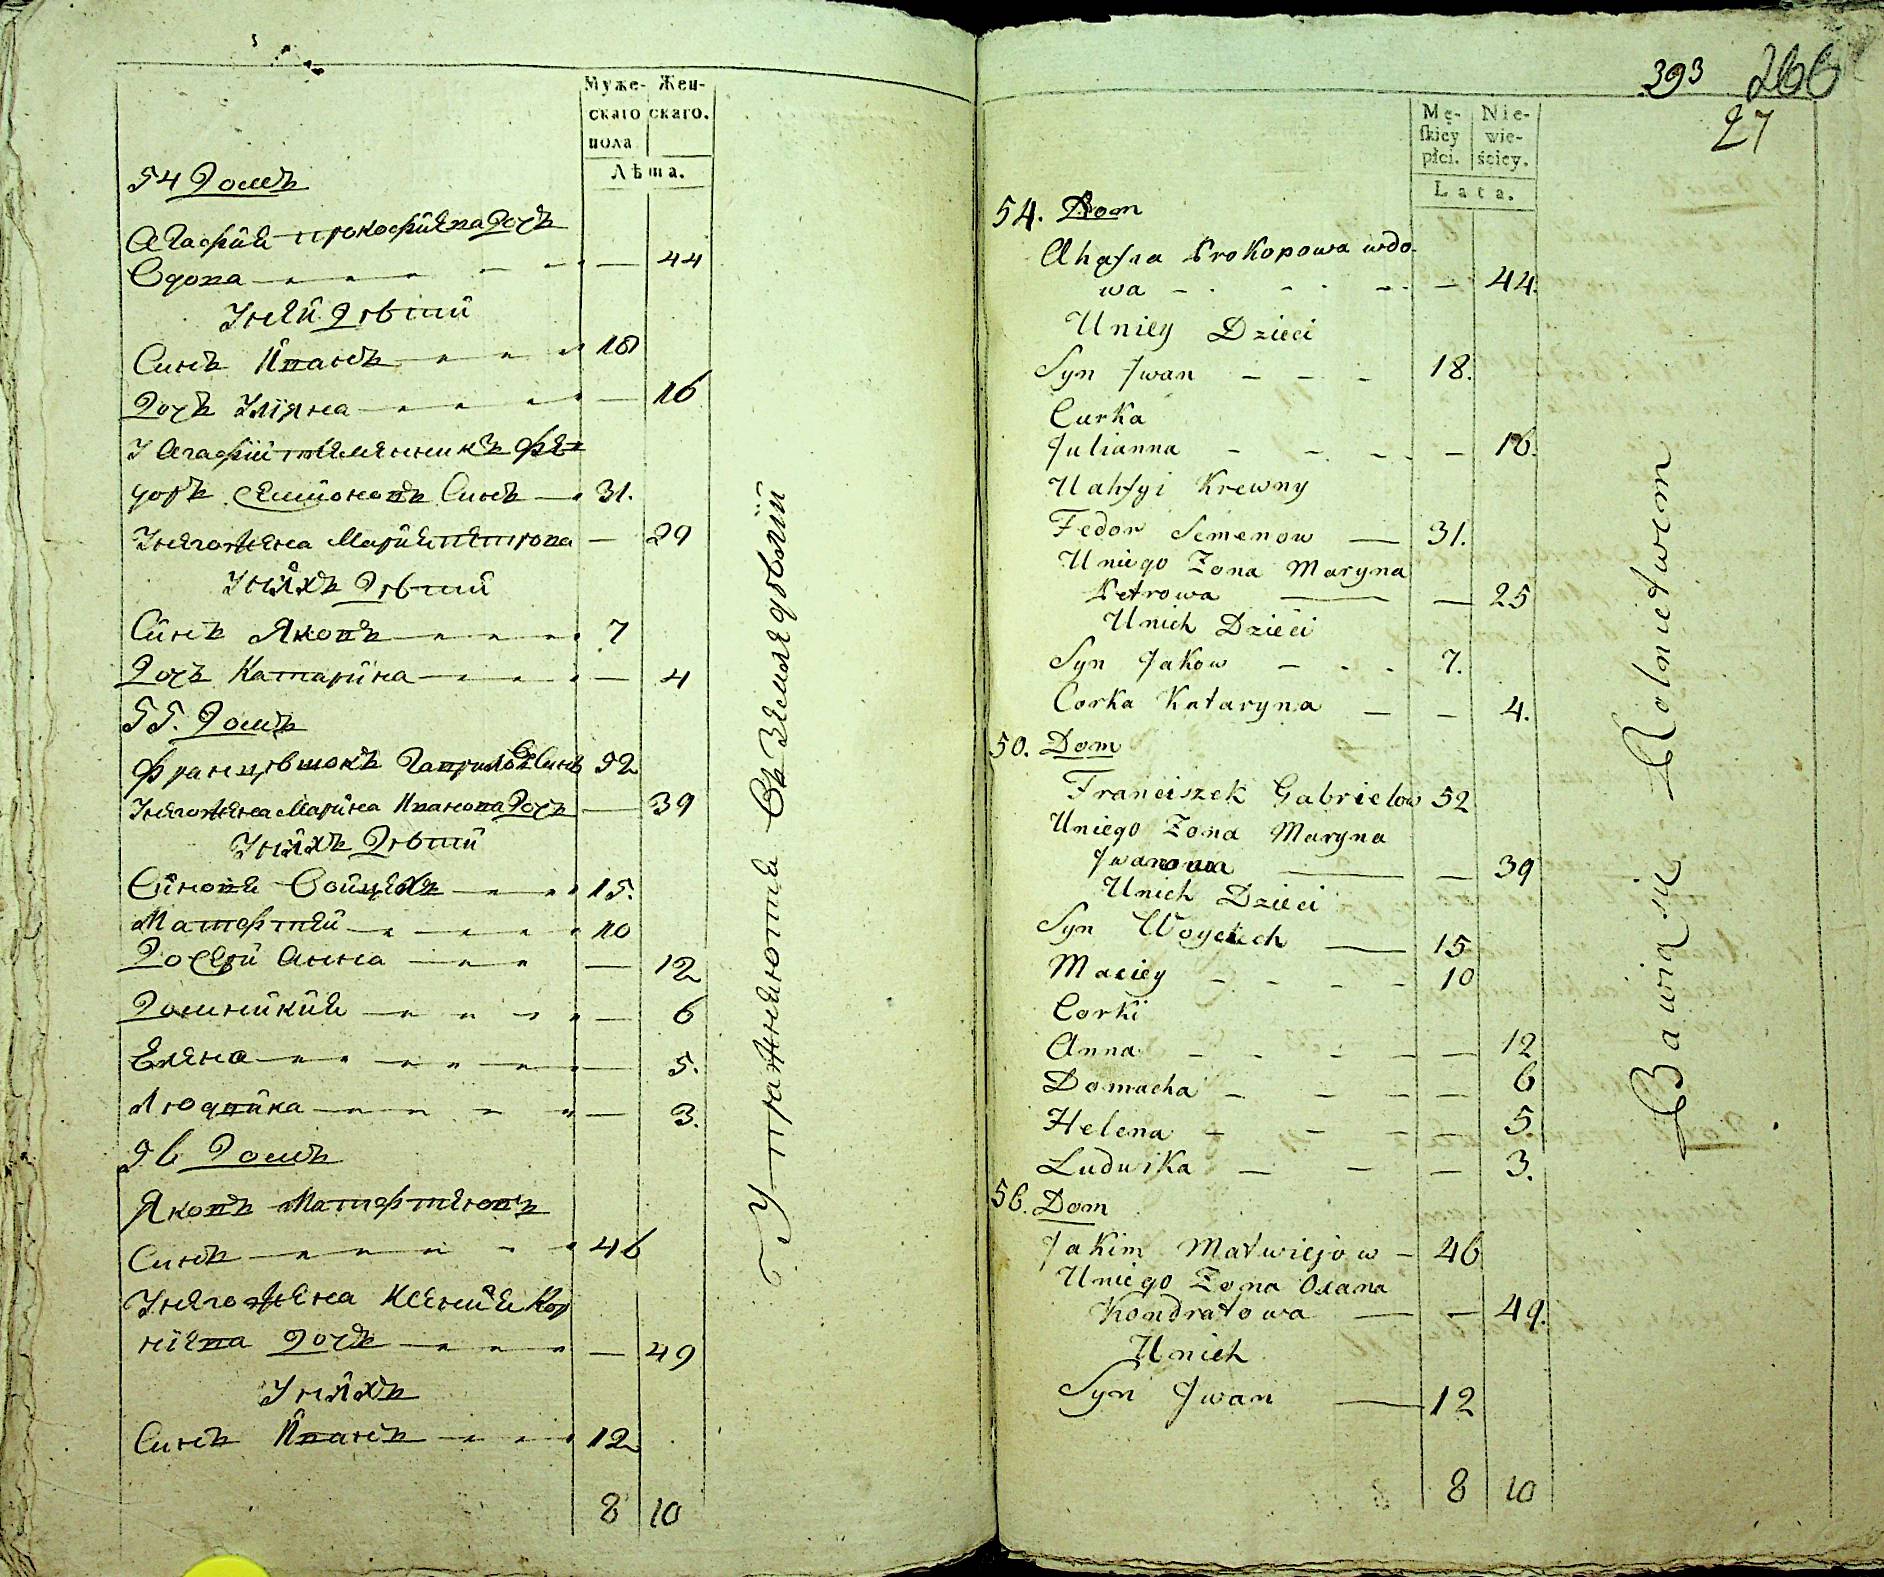 Муже- Жен-
скаго скаго.
пола
Лѣта.
54 Домъ
Агафия Прокофиева Дочъ
Вдова — 44
Унеи Дѣти
Синъ Иванъ 18
Дочъ Улияна — 16
У Агафии племенникъ Фе=
доръ Симоновъ Синъ 31.
Унего жена Мария Петрова — 29
Унихъ Дѣти
Синъ Яковъ 7
Дочъ Катарина — 4
55. Домъ
Францѣшокъ Гавриловъ Синъ 52
Унего жена Марина Иванова Дочъ — 39
Унихъ Дѣти
Синови Войцехъ 15.
Матфтей 10
Дочери Анна — 12
Домникия — 6
Елена — 5.
Людвика — 3.
56 Домъ
Яковъ Матфтеювъ
Синъ 46
Унего жена Ксения Кор
ниева Дочъ — 49
Унихъ
Синъ Иванъ 12
8 10
Упражняются Въ Земледѣлии
393 266
27
Mę- Nie-
skiey wie-
płci. ściey.
Lata.
54. Dom
Ahafia Prokopowa wdo-
wa — 44.
Uniey Dzieci
Syn Jwan 18.
Curka
Julianna — 16.
Uahfyi Krewny
Fedor Semenow — 31.
Uniego Zona Maryna
Petrowa — 25
Unich Dzieci
Syn Jakow 7.
Corka Kataryna — 4.
50. Dom
Franciszek Gabrielow 52
Uniego Zona Maryna
Jwanowa — 39
Unich Dzieci
Syn Woyciech — 15
Maciey 10
Corki
Anna — 12
Domacha — 6
Helena — 5.
Ludwika — 3.
56. Dom
Jakim Matwiejow 46
Uniego Zona Oxana
Kondratowa — 49.
Unich
Syn Jwan — 12
8 10
Bawią się Rolnictwem